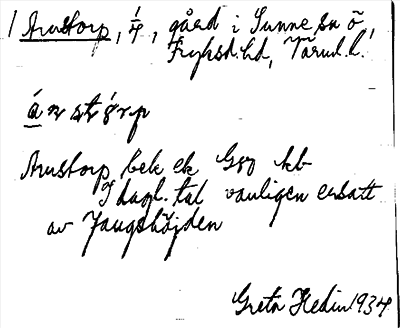 1 Arnstorp, 1/4, gård i Sunne sn ö,
Fryksd. hd, Värml. l.
á n stórp
Arnstorp bek ek Gsz kb
I dagl. tal vanligen ersatt
av Jangshöjden
Greta Hedin 1934